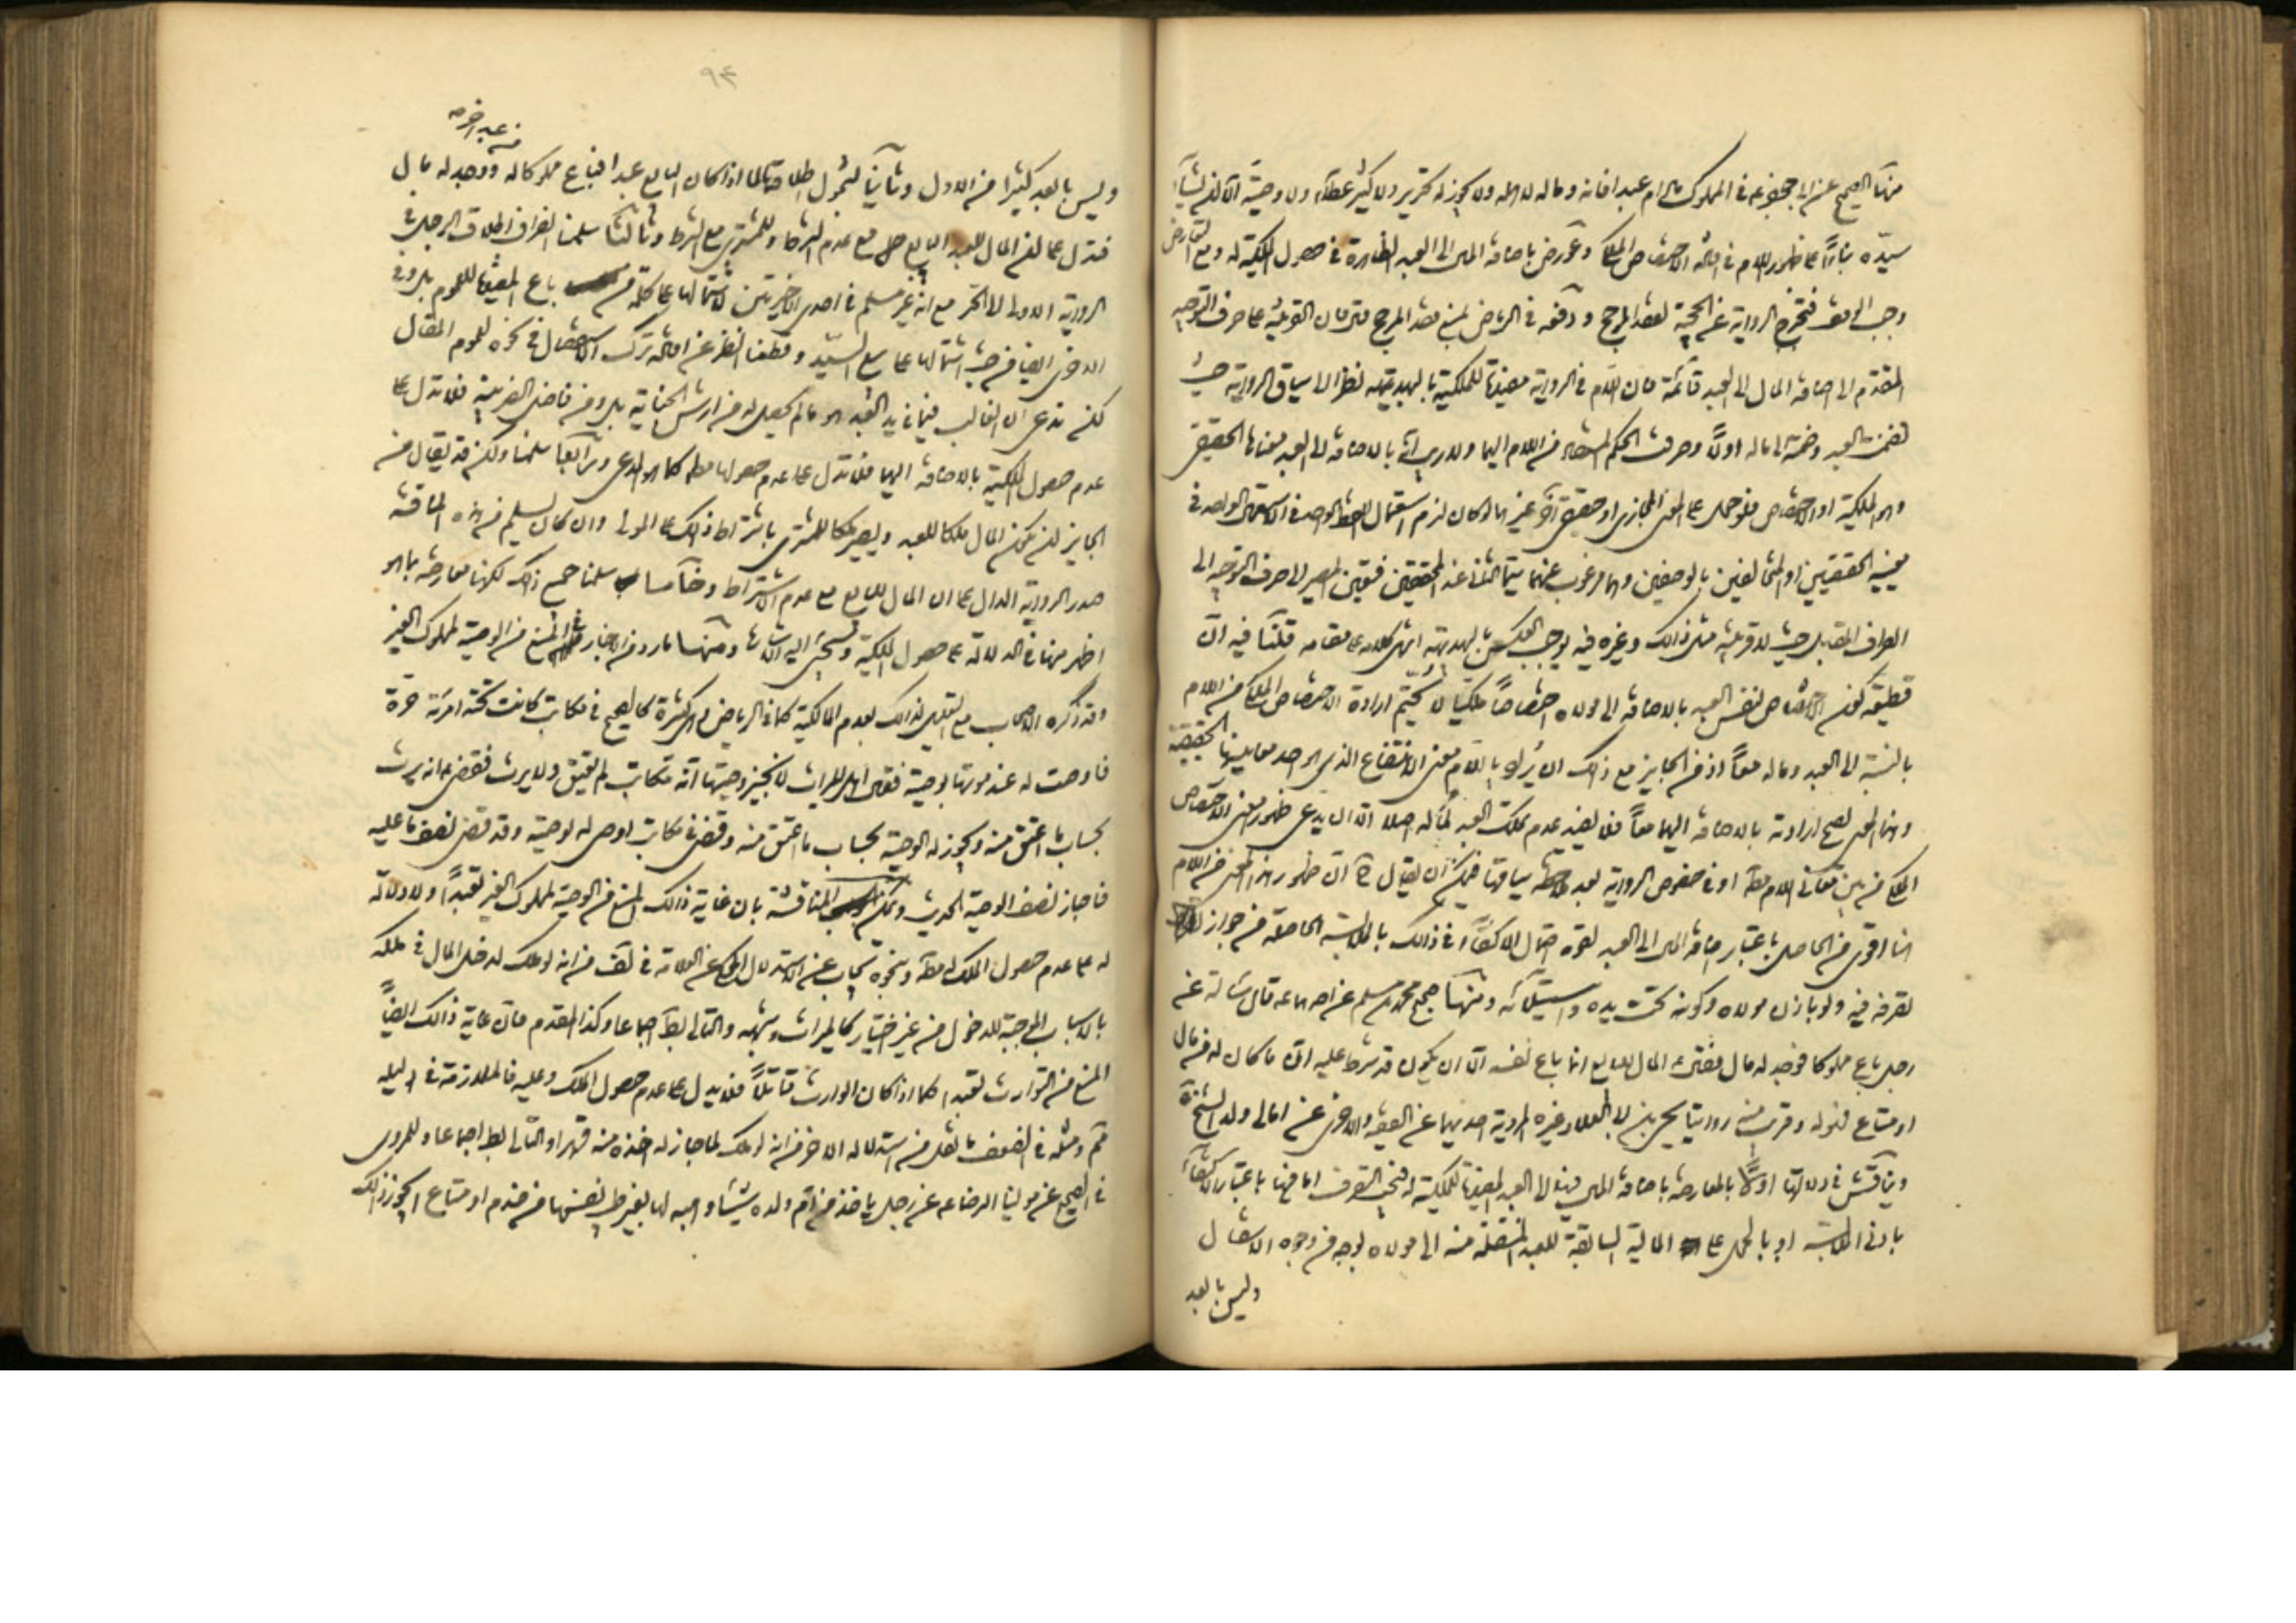 منها الصحيح عن ابي جعفر ع في المملوك مادام عبدا فانه وماله لاهله ولا يجوز له تحرير ولا كثير عطاء ولا وصية الا ان يشاء
سيده بناءً على ظهور اللام في افادة الاختصاص الملكي وعورض باضافة المال الى العبد الظاهرة في حصول الملكية له ومع التعارض
وجب الوقف فتخرج الرواية عن الحجية لفقد المرجح ودفعه في الرياض بمنع فقد المرجح فان القرينة على صرف التوجيه
المقدم الى اضافة المال الى العبد قائمة فان اللام في الرواية مفيدة للملكية بالبديهة نظرا الى سياق الرواية حيث
تضمنت العبد وضمنه الى ماله اولاً وصرفت الحكم المستفاد من اللام اليهما ولا ريب انها بالاضافة الى العبد بمعناها الحقيقي
وهو الملكية او الاختصاص فلو حمل على المعنى المجازي او حقيقي آخر غيرها لكان لزم استعمال اللفظ الواحد في الاستعمال الواحد في
معنييه الحقيقيين او المتخالفين بالوصفين وهما مرغوب عنهما سيما الثاني عند المحققين فتعين المصير الى صرف التوجيه الى
الطرف المقابل حيث لا قرينة مثل ذلك وغيره فيه يوجب العكس بالبديهة انتهى كلامه على مقامه قلنا فيه ان
قضية كون اختصاص نفس العبد بالاضافة الى مولاه اختصاصاً ملكياً لا تحتم ارادة الاختصاص الملكي من اللام
بالنسبة الى العبد وماله معاً اذ من الجايز مع ذلك ان يراد باللام معنى الانتفاع الذي هو احد معانيها الحقيقية
وهذا المعنى يصح ارادته بالاضافة اليهما معاً فلا يفيد عدم تملك العبد لماله اصلا الا ان يدعى ظهور معنى الاختصاص
الملكي من بين معاني اللام مط او في خصوص الرواية بعد ملاحظة سياقها فيمكن ان يقال ح ان ظهور هذا المعنى من اللام
انما اقوى من الحاصل باعتبار اضافة المال الى العبد لقوة احتمال الاكتفاء في ذلك بالملابسة الحاصلة من جواز
تصرفه فيه ولو باذن مولاه وكونه تحت يده واستيلائه ومنها صحيح محمد بن مسلم عن احدهما ع قال سألته عن
رجل باع مملوكا فوجد له مال فقال ع المال للبايع انما باع نفسه الا ان يكون قد شرط عليه ان ما كان له من مال
او متاع فهو له وقريب منه روايتا يحيى بن ابي العلا وغيره المروية احديهما عن الفقيه والاخرى عن امالي ولد الشيخ
ويناقش في دلالتها اولا بالمعارضة باضافة المال فيها الى العبد المفيدة للملكية له فيجب التصرف اما فيها باعتبار الاكتفاء
بادنى الملابسة او بالحمل على المالية السابقة للعبد المنتقلة منه الى مولاه بوجه من وجوه الانتقال
وليس بالبعد
٩٤
وليس بالبعد كثيرا من الاول وثانيا لشمول اطلاقها لما اذا كان البايع عبدا فباع مملوكا له ووجد له مال
فتدل على ان المال للعبد البايع مع عدم الشرط وللمشتري مع الشرط وثالثا سلمنا انصراف اطلاق الرجل في
الرواية الاولى الى الحر مع انه غير مسلم في احدى الاخيرتين لاشتمالها على كلمة من باع المفيدة للعموم بل وفي
الاخرى ايضا من حيث اشتمالها على بيع السيد وقطعنا النظر عن افادة ترك الاستفصال في نحوه للعموم المقال
لكن ندعي ان الغالب فيما في يد العبد هو ما لم يحصل له من ارش الجناية بل ومن فاضل الضريبة فلا تدل على
عدم حصول الملكية بالاضافة اليهما فلا تدل على عدم حصولها مط كما هو المدعى ورابعا سلمنا ولكن قد يقال من
الجايز ان يكون المال ملكا للعبد ويصير ملكا للمشتري باشتراط ذلك على المولى وان كان لا يسلم من هذه المناقشة
صدر الرواية الدال على ان المال للبايع مع عدم الاشتراط وخامسا سلمنا جميع ذلك لكنها معارضة بما هو
اظهر منها في الدلالة على حصول الملكية وستجئ اليه الاشارة ومنها ما ورد من الاخبار في المنع من الوصية لمملوك الغير
وقد ذكره الاصحاب مع التعليل لذلك بعدم المالكية كما في الرياض وهي كثيرة كالصحيح في مكاتب كانت تحته امرءة حرة
فاوصت له عند موتها بوصية فقال اهل الميراث لا نجيز وصيتها انه مكاتب لم يعتق ولا يرث فقضى ع انه يرث
بحساب ما اعتق منه ويجوز له الوصية بحساب ما اعتق منه وقضى في مكاتب اوصى له بوصية وقد قضى نصف ما عليه
فاجاز نصف الوصية الحديث ويمكن المناقشة بان غاية ذلك المنع من الوصية لمملوك الغير تعبداً ولا دلالة
له على عدم حصول الملك له مط وبنحوه يجاب عن الاستدلال المحكي عن العلامة في لف من انه لو ملك لدخل المال في ملكه
بالاسباب الموجبة للدخول من غير اختيار كالميراث وشبهه والتالي بط اجماعا وكذا المقدم فان غاية ذلك ايضاً
المنع من التوارث تعبدا كما اذا كان الوارث قاتلاً فلا يدل على عدم حصول الملك وعليه فالملازمة في دليله
ثم ومثله في الضعف ما نقل من استدلاله الاخر من انه لو ملك لما جاز له اخذه منه قهرا والتالي بط اجماعا وللمروي
في الصحيح عن مولينا الرضا ع عن رجل ياخذ من ام ولده شيئا وهبه لها بغير طيب نفسها من خدم او متاع ايجوز ذلك